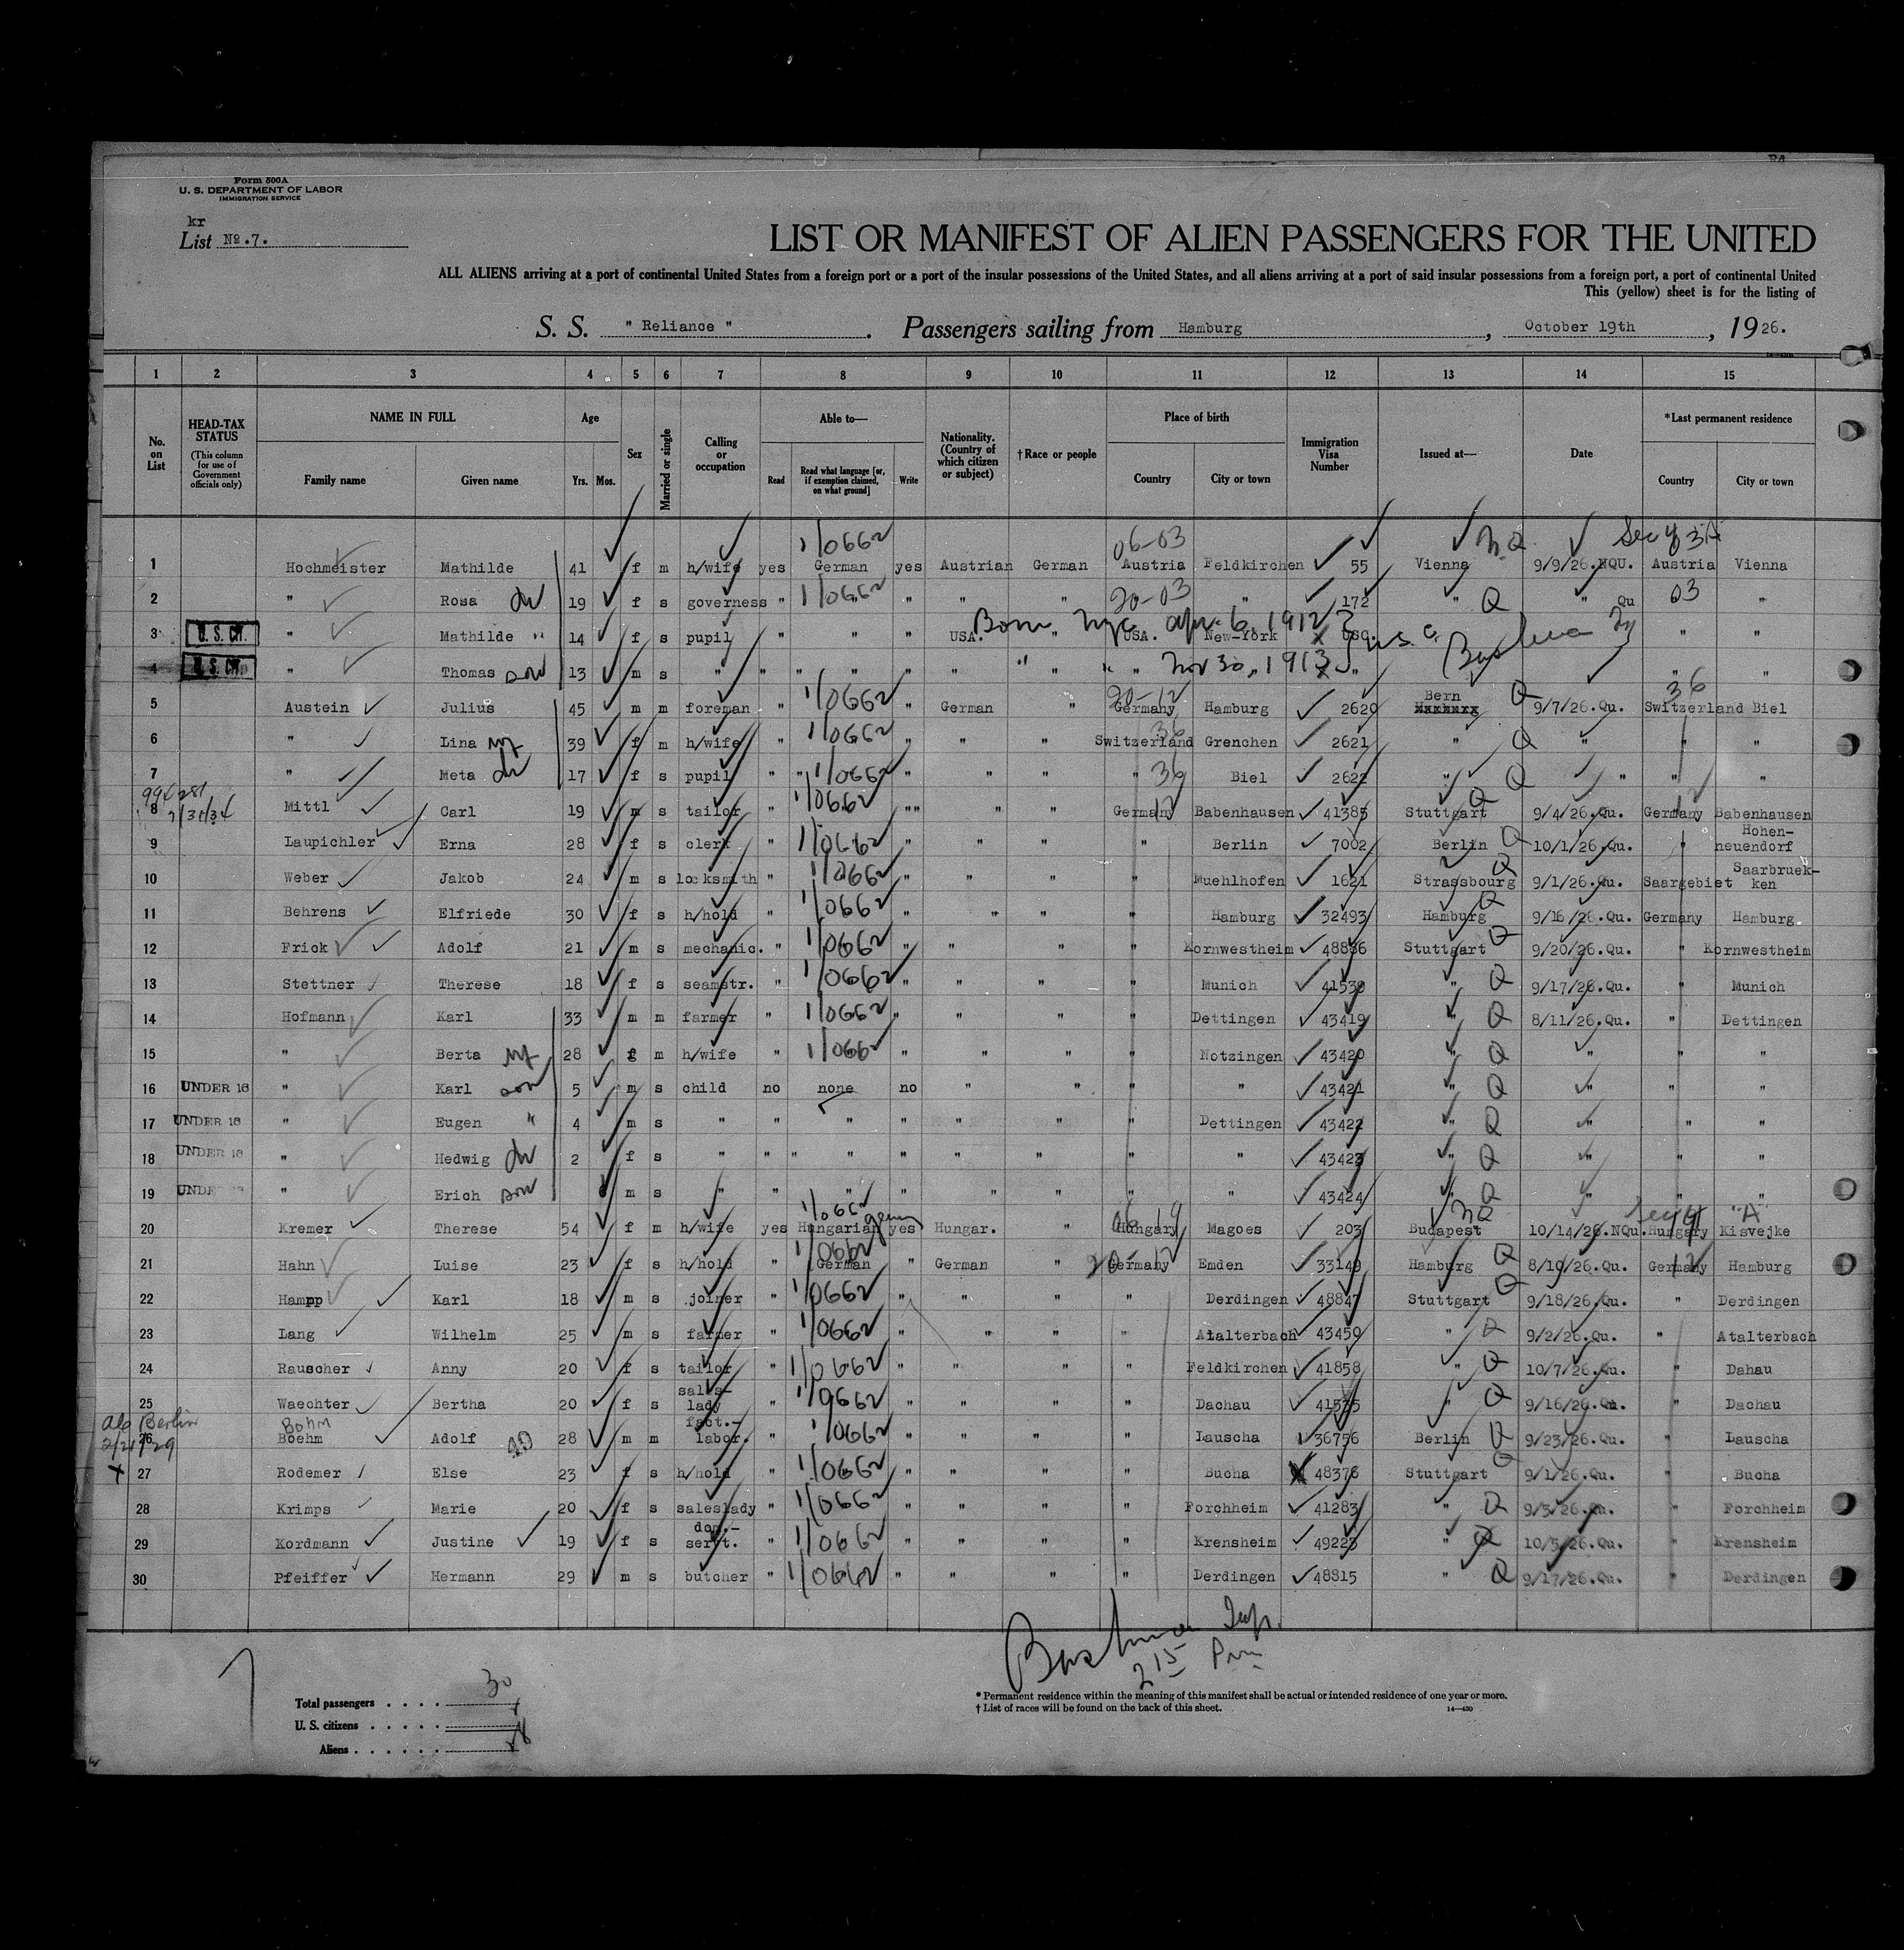 Form 500A
U. S. DEPARTMENT OF LABOR
IMMIGRATION SERVICE
kr
List No.7.
LIST OR MANIFEST OF ALIEN PASSENGERS FOR THE UNITED
ALL ALIENS arriving at a port of continental United States from a foreign port or a port of the insular possessions of the United States, and all aliens arriving at a port of said insular possessions from a foreign port, a port of continental United
This (yellow) sheet is for the listing of
S. S. " Reliance ". Passengers sailing from Hamburg, October 19th, 1926.
1 2 3 4 5 6 7 8 9 10 11 12 13 14 15
No. on List
HEAD-TAX STATUS (This column for use of Government officials only)
NAME IN FULL
Family name Given name
Age
Yrs. Mos.
Sex
Married or single
Calling or occupation
Able to—
Read Read what language [or, if exemption claimed, on what ground] Write
Nationality. (Country of which citizen or subject)
†Race or people
Place of birth
Country City or town
Immigration Visa Number
Issued at—
Date
*Last permanent residence
Country City or town
1/0662 06-03 NQ Sec 4 3A
1 Hochmeister Mathilde 41 f m h/wife yes German yes Austrian German Austria Feldkirchen 55 Vienna 9/9/26.NQU. Austria Vienna
2 " Rosa 19 f s governess " 1/0662 " " " 20-03 " 172 " Q " Qu 03 "
Born Nyc Apr. 6, 1912
3 U. S. CIT. " Mathilde " 14 f s pupil " " " USA. " USA. New-York x USC. U.S.C. " "
4 U. S. CIT. " Thomas son 13 m s " " " " " " " " Nov 30, 1913 x " " "
5 Austein Julius 45 m m foreman " 1/0662 " German " 20-12 Germany Hamburg 2620 Bern Q 9/7/26.Qu. 36 Switzerland Biel
6 " Lina wf 39 f m h/wife " 1/0662 " " " 36 Switzerland Grenchen 2621 " Q " " "
7 " Meta 17 f s pupil " " 1/0662 " " " " 36 Biel 2622 " Q " " " "
8 Mittl Carl 19 m s tailor " 1/0662 "" " " Germany 12 Babenhausen 41385 Stuttgart Q 9/4/26.Qu. Germany 12 Babenhausen
9 Laupichler Erna 28 f s clerk " 1/0662 " " " " Berlin 7002 Berlin Q 10/1/26.Qu. " Hohen-
neuendorf
10 Weber Jakob 24 m s locksmith " 1/0662 " " " " Muehlhofen 1621 Strassbourg Q 9/1/26.Qu. Saargebiet Saarbruek-
ken
11 Behrens Elfriede 30 f s h/hold " 1/0662 " " " " Hamburg 32493 Hamburg Q 9/16/26.Qu. Germany Hamburg
12 Frick Adolf 21 m s mechanic. " 1/0662 " " " " Kornwestheim 48886 Stuttgart Q 9/20/26.Qu. " Kornwestheim
13 Stettner Therese 18 f s seamstr. " 1/0662 " " " " Munich 41539 " Q 9/17/26.Qu. " Munich
14 Hofmann Karl 33 m m farmer " 1/0662 " " " " Dettingen 43419 " Q 8/11/26.Qu. " Dettingen
15 " Berta wf 28 f m h/wife " 1/0662 " " " " Notzingen 43420 " Q " " "
16 UNDER 16 " Karl son 5 m s child no none no " " " " 43421 " Q " " "
17 UNDER 16 " Eugen " 4 m s " " " " " " " Dettingen 43422 " Q " " "
18 UNDER 16 " Hedwig 2 f s " " " " " " " " " 43423 " Q " " "
19 UNDER 16 " Erich son m s " " " " " " " " 43424 " Q " " "
20 Kremer Therese 54 f m h/wife yes 1/0662 Hungarian yes Hungar. " Hungary Magoes 203 Budapest NQ 10/14/26.NQu. Hungary Kisvejke
21 Hahn Luise 23 f s h/hold " 1/0662 German " German " 20-12 Germany Emden 33149 Hamburg Q 8/19/26.Qu. Germany 12 Hamburg
22 Hampp Karl 18 m s joiner " 1/0662 " " " " Derdingen 48847 Stuttgart Q 9/18/26.Qu. " Derdingen
23 Lang Wilhelm 25 m s farmer " 1/0662 " " " " Atalterbach 43459 " Q 9/2/26.Qu. " Atalterbach
24 Rauscher Anny 20 f s tailor " 1/0662 " " " " Feldkirchen 41858 " Q 10/7/26.Qu. " Dahau
25 Waechter Bertha 20 f s sales-
lady " 1/0662 " " " " Dachau 41535 " Q 9/16/26.Qu. " Dachau
Berlin 2/21/29 Bohm
26 Boehm Adolf 28 m m fact.-
labor. " 1/0662 " " " " Lauscha 36756 Berlin Q 9/23/26.Qu. " Lauscha
x 27 Rodemer Else 23 f s h/hold " 1/0662 " " " " Bucha 48376 Stuttgart Q 9/1/26.Qu. " Bucha
28 Krimps Marie 20 f s saleslady " 1/0662 " " " " Forchheim 41283 " Q 9/3/26.Qu. " Forchheim
29 Kordmann Justine 19 f s dom.-
servt. " 1/0662 " " " " Krensheim 49223 " Q 10/5/26.Qu. " Krensheim
30 Pfeiffer Hermann 29 m s butcher " 1/0662 " " " " Derdingen 48815 " Q 9/17/26.Qu. " Derdingen
Insp.
215 Pm
Total passengers . . . . 30
U. S. citizens . . . . .
Aliens . . . . . .
* Permanent residence within the meaning of this manifest shall be actual or intended residence of one year or more.
† List of races will be found on the back of this sheet.
14—430